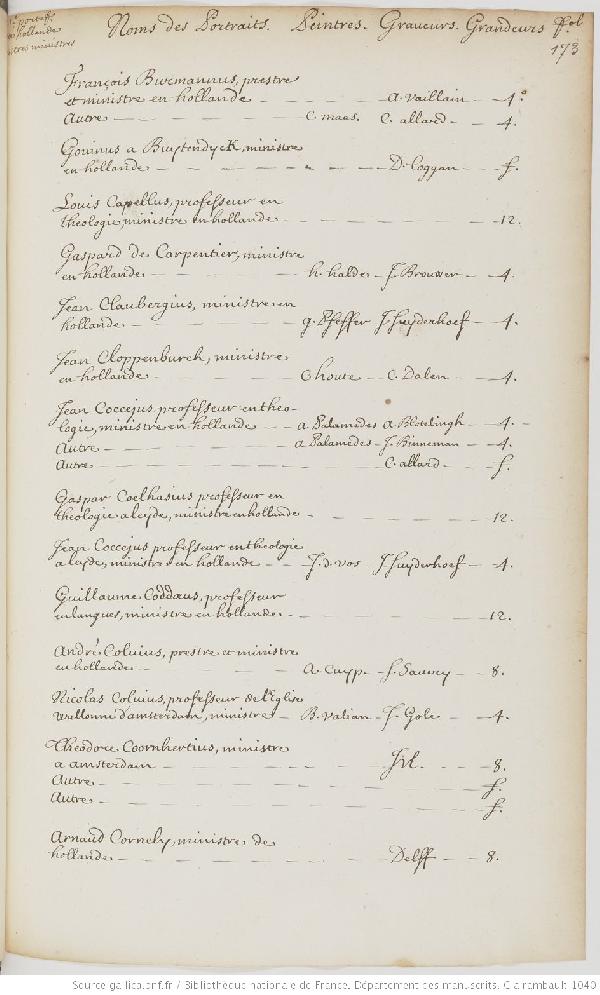 Noms des Portraits. Peintres. Graveurs. Grandeurs fol
173
François Burmannus, prestre
et ministre en hollande - - - - A. Vaillain - - 4.°
Autre - - - - C. maas. C. allard - - 4.
Gouinus a Buytendyck, ministre
en hollande - - - - D. Loggan - - f.
Louis Capellus, professeur en
theologie, ministre en hollande - - - - 12.
Gaspard de Carpentier, ministre
en hollande - - - - h. haldes - J. Brouwer - - 4.
Jean Claubergius, ministre en
hollande - - - - g. Pfeffer J. Suyderhoef - - 4.
Jean Cloppenburch, ministre
en hollande - - - - Choute - C. Dalen - - 4.
Jean Coccejus, professeur en theo-
logie, ministre en hollande - - a Palamedes A Blotelingh - 4. -
Autre - - - - a Palamedes - J. Binneman - - 4.
Autre - - - - C. allard - - f.
Gaspar Coelhasius professeur en
theologie a leyde, ministre en hollande - - - - 12.
Jean Coccejus professeur en theologie
a leyde, ministre en hollande - - J. d. vos J. Suyderhoef - - 4.
Guillaume Coddæus, professeur
en langues, ministre en hollande - - - - 12.
André Coluius, prestre et ministre
en hollande - - - - A. Cuyp - S. Saurey - 8.
Nicolas Coluius, professeur de l'Eglise
wallonne d'amsterdam, ministre - B. Valian - J. Gole - - 4.
Theodore Coornhertius, ministre
a amsterdam - - - - - - 8.
Autre - - - - f.
Autre - - - - f.
Arnaud Cornely, ministre de
hollande - - - - Delff - - 8.
Source gallica.bnf.fr / Bibliothèque nationale de France. Département des manuscrits. Clairambault 1040